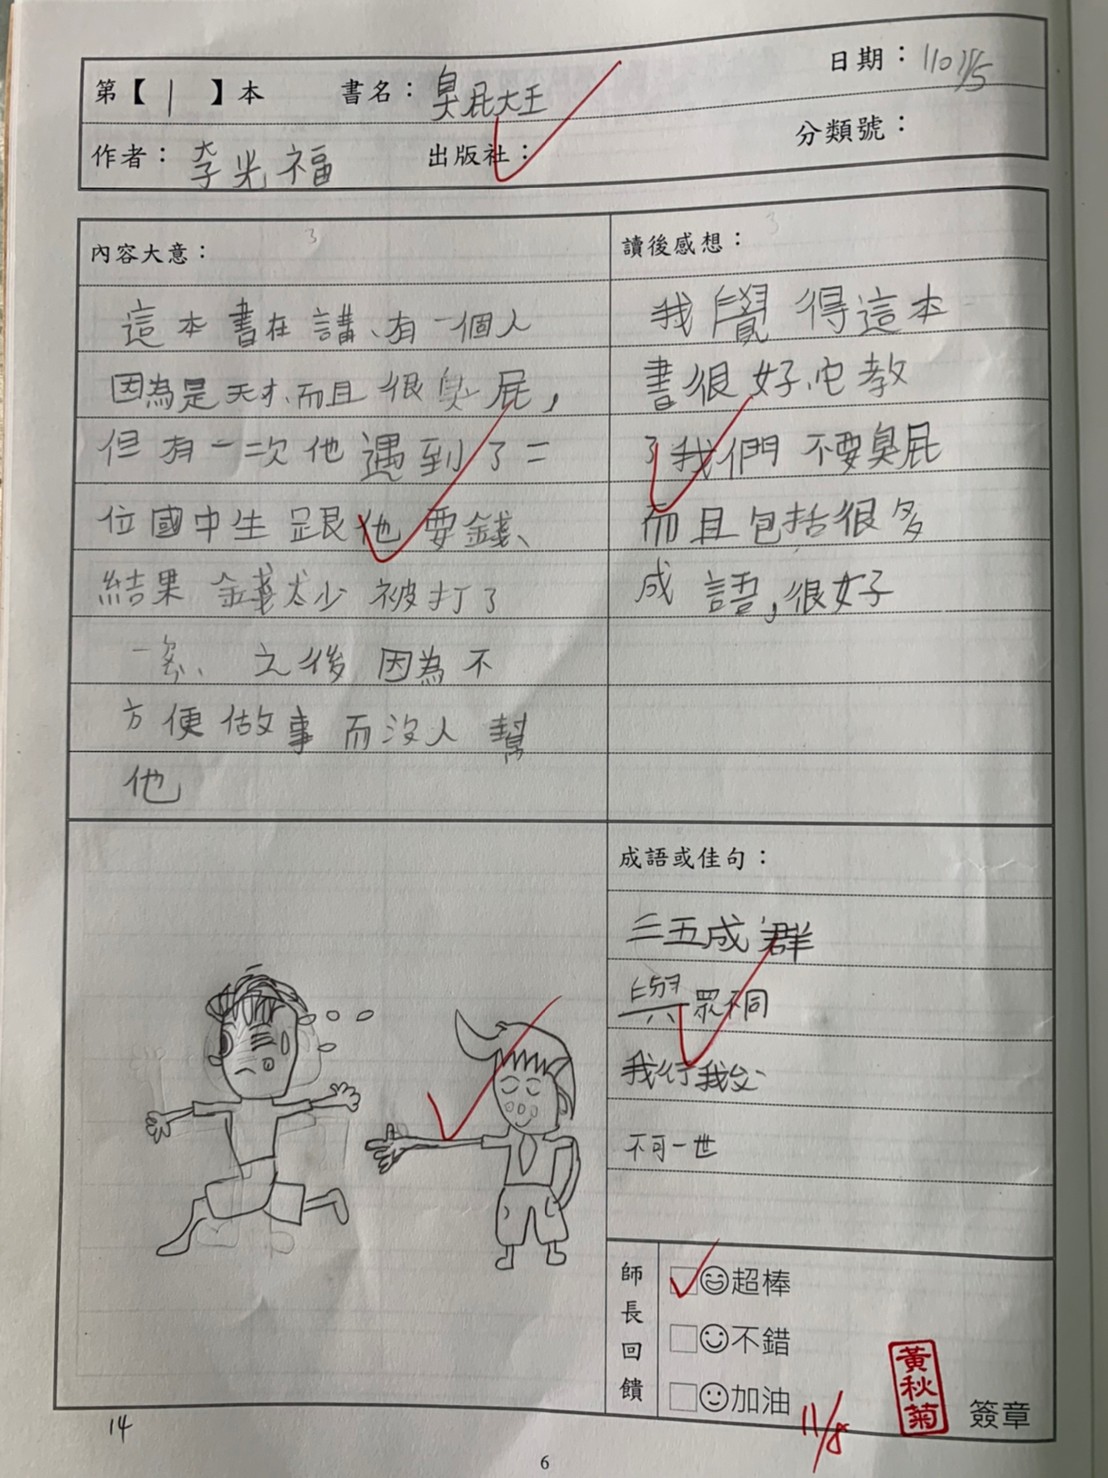 日期：110 11/5
第【 1 】本 書名：臭屁大王
分類號：
作者：李光福 出版社：
內容大意：
3
這本書在講、有一個人
因為是天才、而且很臭屁，
但有一次他遇到了二
位國中生跟他要錢、
結果錢太少被打了
之後因為不
方便做事而沒人幫
他
讀後感想：
3
我覺得這本
書很好、它教
了我們不要臭屁
而且包括很多
成語，很好
成語或佳句：
三五成群
與眾不同
我行我
不可一世
師長回饋
超棒
不錯
加油
11/8
黃秋菊
簽章
14
6